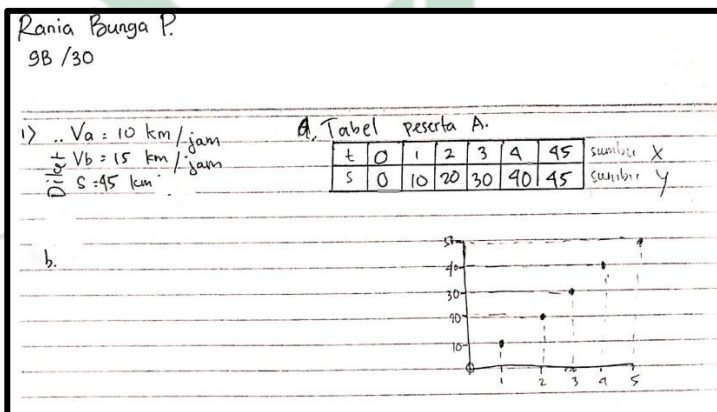 Rania Bunga P.
9B /30
1) .. Va = 10 km/jam
Diket Vb = 15 km/jam
S = 45 km
a. Tabel peserta A.
t 0 1 2 3 4 45 sumbu X
S 0 10 20 30 40 45 sumbu Y
b.
50
40
30
20
10
0
1 2 3 4 5